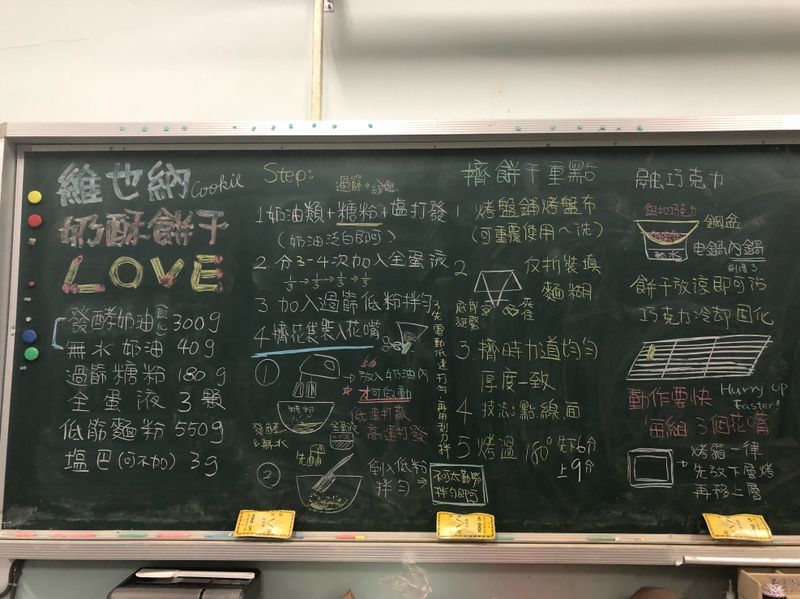 維也納 Cookie
奶酥餅干
LOVE
發酵奶油 軟化 300g
無水奶油 40g
過篩糖粉 180g
全蛋液 3顆
低筋麵粉 550g
塩巴(可不加) 3g
Step:
過篩
1 奶油類+糖粉+塩打發
(奶油泛白即可)
2 分3-4次加入全蛋液
1/3→1/3→1/3→1/3
3 加入過篩低粉拌勻
4 擠花袋裝入花嘴
①
放入奶油內
才可啟動
低速打散
高速打發
糖粉
發酵
無水
②
倒入低粉
拌勻
不可太勤勞
拌勻即可
擠餅干重點
1 烤盤鋪烤盤布
(可重覆使用~洗)
2 反折裝填
麵糊
3 擠時力道均勻
厚度一致
4 技法:點線面
5 烤溫 180° 先下6分
上9分
融巧克力
鈕扣巧克力
鋼盆
熱水
电鍋內鍋
餅干放涼即可沾
巧克力冷卻固化
動作要快 Hurry up
Faster!
每組3個花嘴
烤箱一律
先放下層烤
再移上層